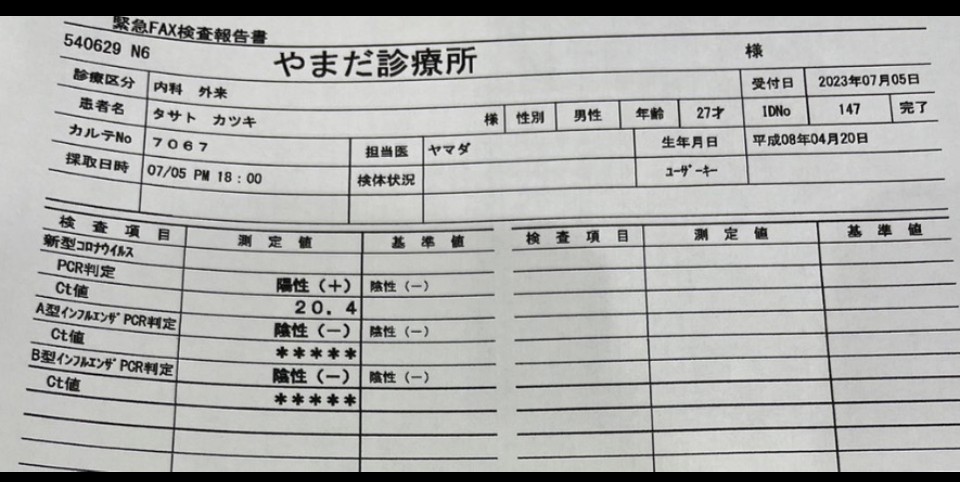 緊急FAX検査報告書
540629 N6
やまだ診療所 様
診療区分 内科 外来 受付日 2023年07月05日
患者名 タサト カツキ 様 性別 男性 年齢 27才 IDNo 147 完了
カルテNo 7067 担当医 ヤマダ 生年月日 平成08年04月20日
採取日時 07/05 PM 18:00 検体状況 ユーザーキー
検査項目 測定値 基準値 検査項目 測定値 基準値
新型コロナウイルス
PCR判定 陽性(+) 陰性(-)
Ct値 20.4
A型インフルエンザPCR判定 陰性(-) 陰性(-)
Ct値 *****
B型インフルエンザPCR判定 陰性(-) 陰性(-)
Ct値 *****